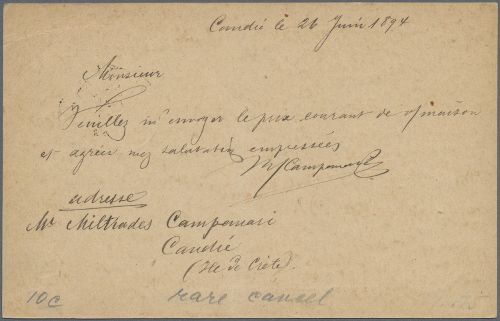 Candié le 26 Juin 1894
Monsieur
Veuillez m'envoyer le prix courant de v/maison
et agréer mes salutations empressées
M Campanari
adresse
Mr. Miltiades Campanari
Candié
(Ile de Crète)
10c rare cancel